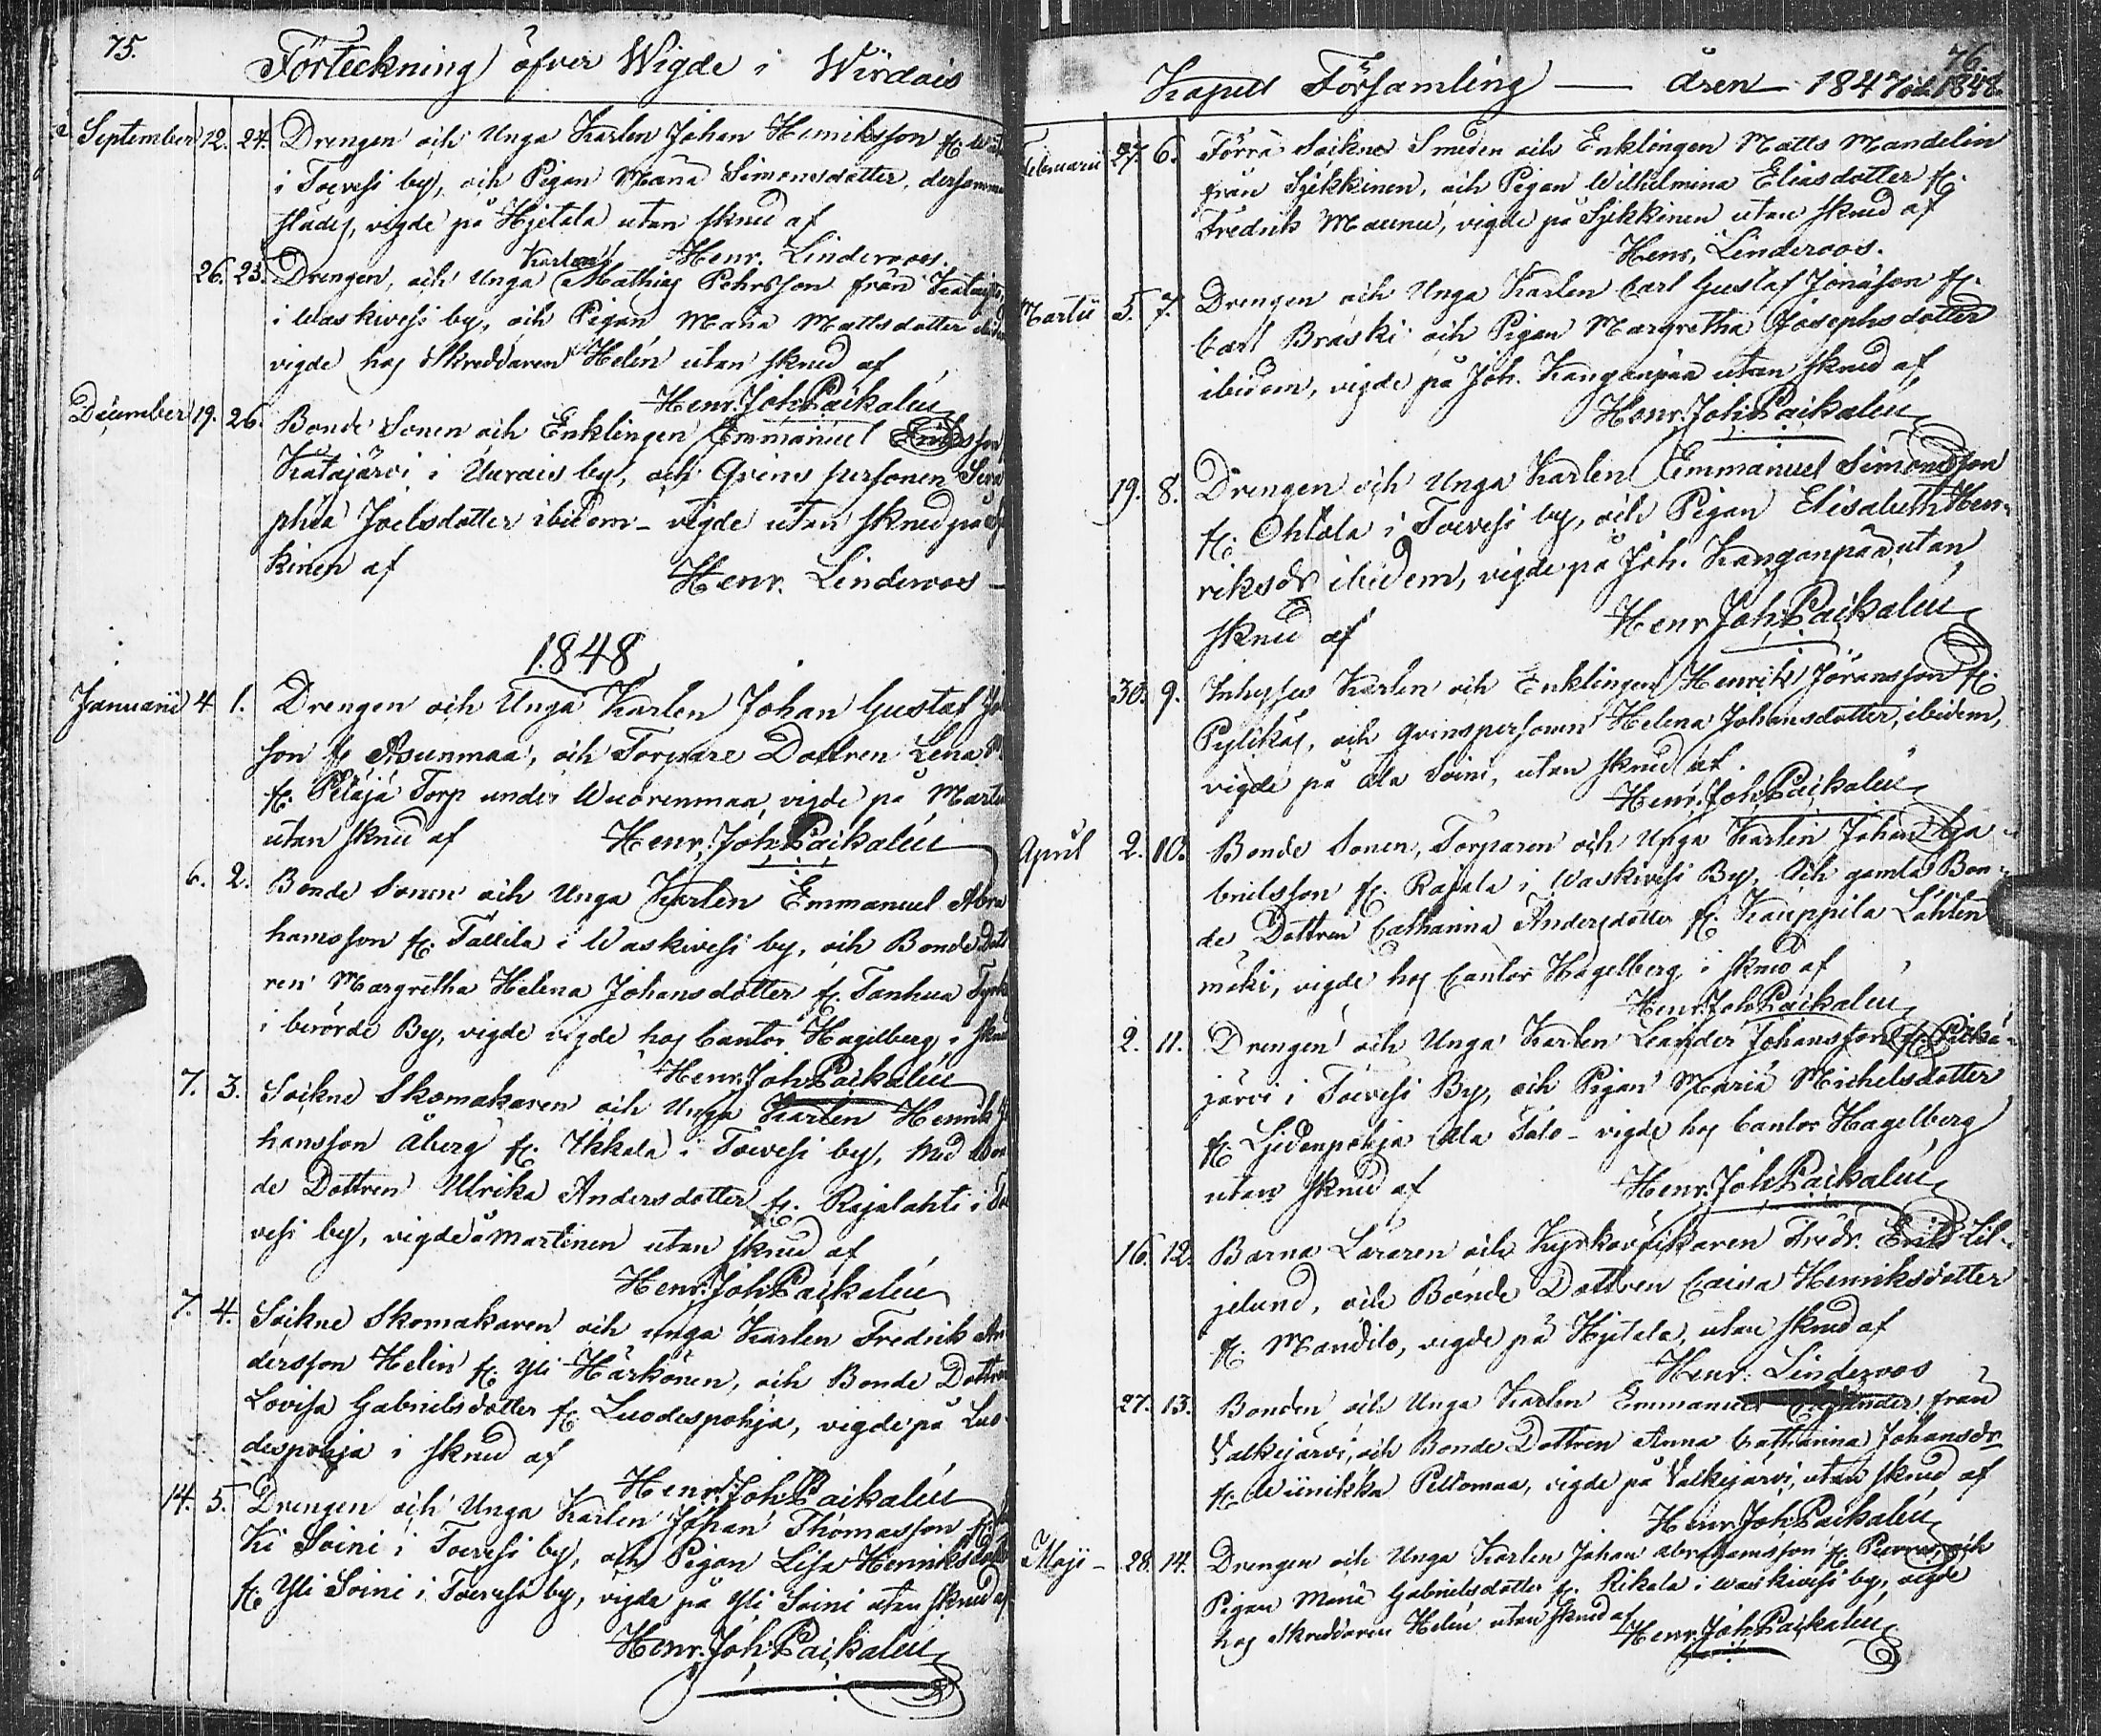 75.
Förteckning öfver Wigde i Wirdois
September 12. 24. Drengen och Unga Karlen Johan Henriksson fr.
i Toevesi by, och Pigan Maria Simonsdotter, dersamma
städes, vigde på Hjetala utan skrud af
Henr. Linderoos.
26. 25. Drengen, och Unga Karlen Mathias Pehrsson från
i Waskivesi by, och Pigan Maria Mattsdotter
vigde hos Skreddaren Helén utan skrud af
Henr. Joh. Paikaleu
December 19. 26. Bonde Sonen och Enklingen Emmanuel Eriksson
Katajärvi i Uurais by, och Qvins personen Sera
phia Joelsdotter ibidem – vigde utan skrud på
kinen af
Henr. Linderoos –
1848
Januarii 4. 1. Drengen och Unga Karlen Johan Gustaf
son fr Asunmaa, och Torpare Dottren Lena
fr. Petäjä Torp under Wuorenmaa vigde på
utan skrud af Henr. Joh. Paikaleu
6. 2. Bonde Sonen och Unga Karlen Emmanuel Abra
hamsson fr. Tallila i Waskivesi by, och Bonde Dott
ren Margretha Helena Johansdotter fr. Tanhua
i berörde By, vigde vigde hos Cantor Hagelberg i
Henr. Joh. Paikaleu
7. 3. Sockne Skomakaren och Unga Karlen Henrik
hansson Åberg fr. Ikkala i Toevesi by, Med Bon
de Dottren Ulrika Andersdotter fr. Rajalahti i
vesi by, vigde å Martinen utan skrud af
Henr. Joh. Paikaleu
7. 4. Sockne Skomakaren och unga Karlen Fredrik An
dersson Helin fr. Yli Härkönen, och Bonde Dottren
Lovisa Gabrielsdotter fr. Luodespohja, vigde på Luo
despohja i skrud af
Henr. Joh. Paikaleu
14. 5. Drengen och Unga Karlen Johan Thomasson fr.
ki Soini i Toevesi by, och Pigan Lisa Henriksdotter
fr. Yli Soini i Toevesi by, vigde på Yli Soini utan skrud af
Henr. Joh. Paikaleu
76.
Kapell Församling — åren 1847 och 1848.
Februarii 27. 6. Förra Sockne Smeden och Enklingen Matts Mandelin
från Sjekkinen, och Pigan Wilhelmina Eliasdotter fr.
Fredrik Maunu, vigde på Sjekkinen utan skrud af
Henr. Linderoos.
Martii 5. 7. Drengen och Unga Karlen Carl Gustaf Jonasson fr.
Carl Braski och Pigan Margretha Josephsdotter
ibidem, vigde på Joh. Kanganpää utan skrud af
Henr. Joh. Paikaleu
19. 8. Drengen och Unga Karlen Emmanuel Simonsson
fr. Ohtola i Toevesi by, och Pigan Elisabeth Hen-
riksdr ibidem, vigde på Joh. Kanganpää utan
skrud af Henr. Joh. Paikaleu
30. 9. Inhyses Karlen och Enklingen Henrik Jöransson fr.
och Qvinspersonen Helena Johansdotter, ibidem,
vigde på Ala Soini, utan skrud af.
Henr. Joh. Paikaleu
April 2. 10. Bonde Sonen, Torparen och Unga Karlen Johan Ga-
brielsson fr. Rajala i Waskivesi By, Och gamla Bon-
de Dottren Catharina Andersdotter fr. Kauppila Lähten
mäki, vigde hos Cantor Hagelberg i skrud af
Henr. Joh. Paikaleu
2. 11. Drengen och Unga Karlen Leander Johansson fr. Pitkä-
järvi i Toevesi By, och Pigan Maria Michelsdotter
fr. Ljedenpohja Ala Talo – vigde hos Cantor Hagelberg
utan skrud af Henr. Joh. Paikaleu
16. 12. Barna Läraren och Kyrkovärkaren Fredr. Erik Lil-
jelund, och Bonde Dottren Caisa Henriksdotter
fr. Mandila, vigde på Hjetala, utan skrud af
Henr. Linderoos
27. 13. Bonden och Unga Karlen Emmanuel från
Valkejärvi, och Bonde Dottren Anna Catharina Johansdr
fr. Wiinikka Peltomaa, vigde på Valkejärvi, utan skrud af
Henr. Joh. Paikaleu
Maji – 28. 14. Drengen och Unga Karlen Johan Abrahamsson fr. och
Pigan Maria Gabrielsdotter fr. Rikala i Waskivesi by, vigde
hos Skreddaren Helén utan skrud af Henr. Joh. Paikaleu